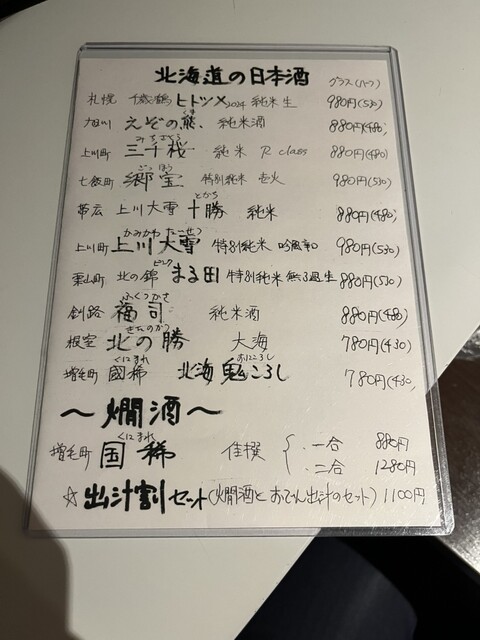 北海道の日本酒 グラス(ハーフ)
札幌 千歳鶴 ヒトツメ2024 純米生 980円(530)
旭川 えぞの熊 純米酒 880円(480)
くま
みちざくら
上川町 三千櫻 純米 R class 880円(480)
ごっほう
七飯町 郷宝 特別純米 壱火 980円(530)
とかち
帯広 上川大雪 十勝 純米 880円(480)
かみかわ たいせつ
上川町 上川大雪 特別純米 吟風辛口 980円(530)
栗山町 北の錦 まる田 特別純米 無ろ過生 880円(520)
ふくつかさ
釧路 福司 純米酒 880円(480)
きたのかつ
根室 北の勝 大海 780円(430)
くにまれ おにころし
増毛町 國稀 北海鬼ころし 780円(430)
〜燗酒〜
くにまれ
増毛町 国稀 佳撰 一合 880円
二合 1280円
☆出汁割セット(燗酒とおでん出汁のセット) 1100円